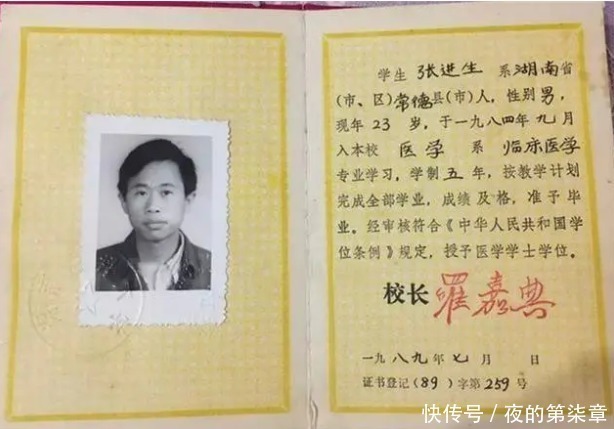 学生 张进生 系湖南省
(市、区)常德县(市)人，性别男，
现年 23 岁，于一九八四年九月
入本校 医学 系 临床医学
专业学习，学制五年，按教学计划
完成全部学业，成绩及格，准予毕
业。经审核符合《中华人民共和国学
位条例》规定，授予医学学士学位。
校长 罗嘉典
一九八九年七月 日
证书登记(89)字第259号
快传号／夜的第柒章